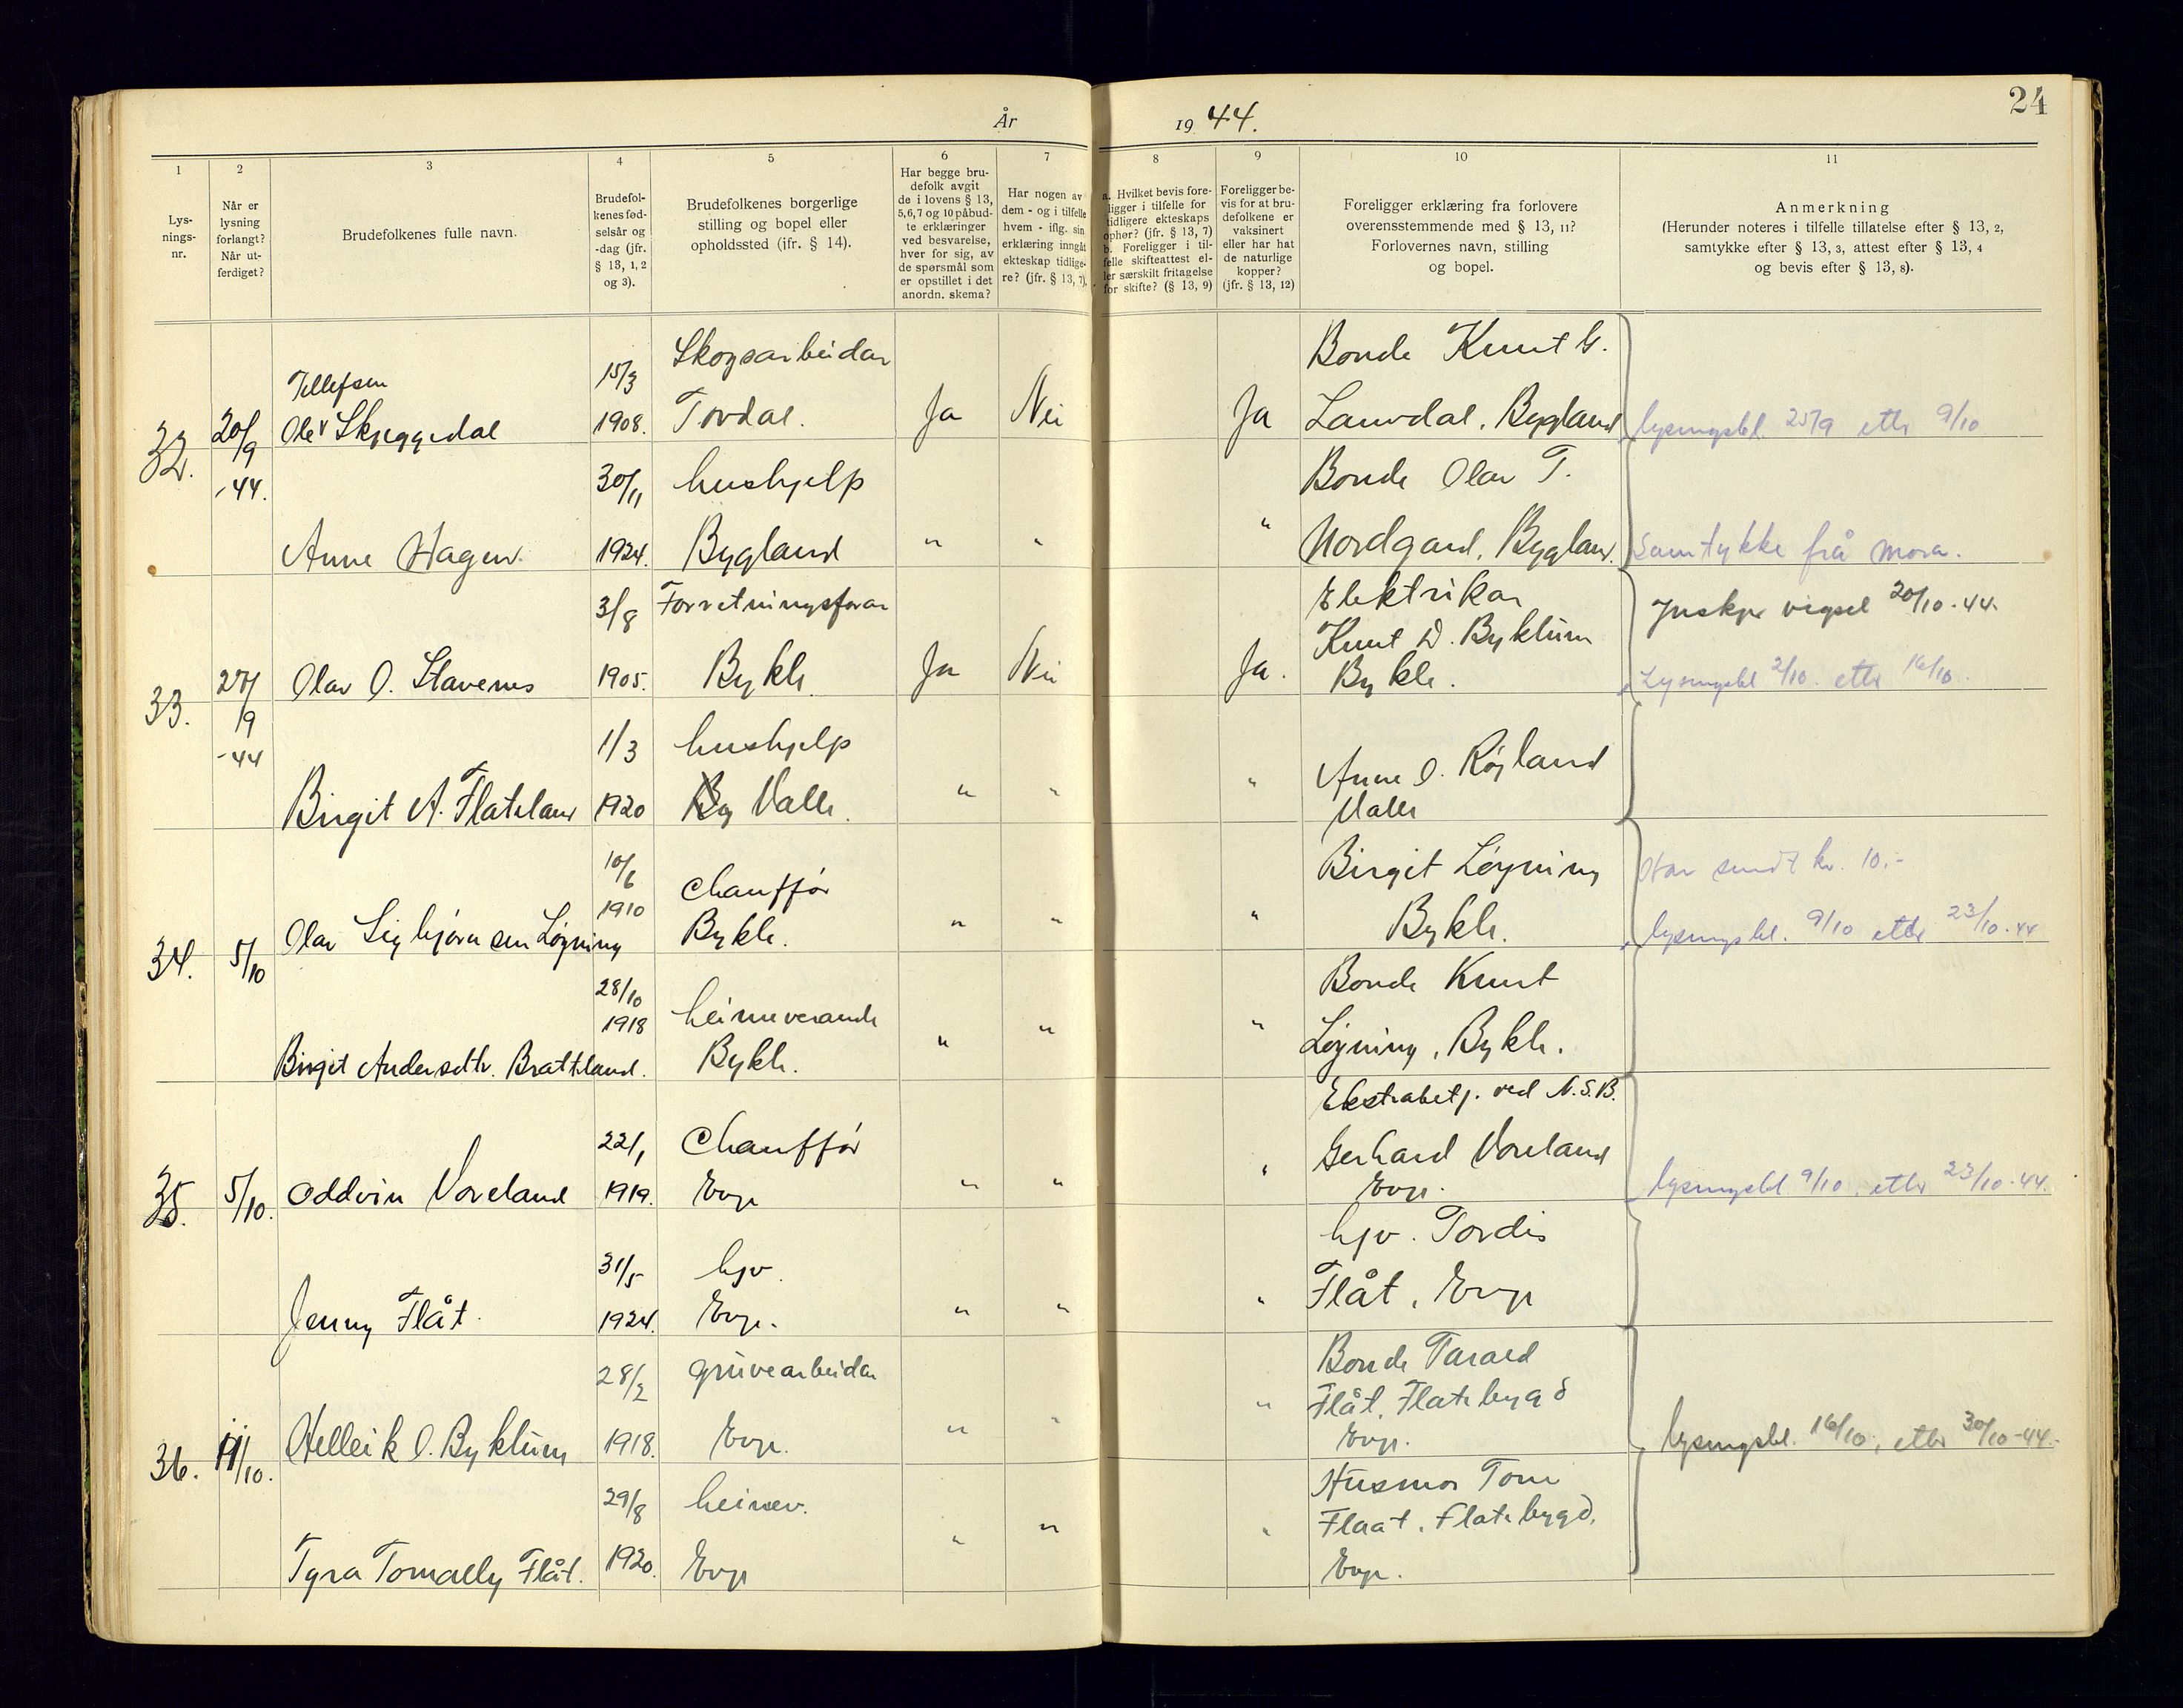 År 1944.
24
1 2 3 4 5 6 7 8 9 10 11
Lys-
nings-
nr.
Når er
lysning
forlangt?
Når ut-
ferdiget?
Brudefolkenes fulle navn.
Brudefol-
kenes fød-
selsår og
-dag (jfr.
§ 13, 1, 2
og 3).
Brudefolkenes borgerlige
stilling og bopel eller
opholdssted (jfr. § 14).
Har begge bru-
defolk avgit
de i lovens § 13,
5,6,7 og 10 påbud-
te erklæringer
ved besvarelse,
hver for sig, av
de spørsmål som
er opstillet i det
anordn. skema?
Har nogen av
dem - og i tilfelle
hvem - iflg. sin
erklæring inngått
ekteskap tidlige-
re? (jfr. § 13, 7).
a. Hvilket bevis fore-
ligger i tilfelle for
tidligere ekteskaps
ophør? (jfr. § 13, 7)
b. Foreligger i til-
felle skifteattest el-
ler særskilt fritagelse
for skifte? (§ 13, 9)
Foreligger be-
vis for at bru-
defolkene er
vaksinert
eller har hat
de naturlige
kopper?
(jfr. § 13, 12)
Foreligger erklæring fra forlovere
overensstemmende med § 13, 11?
Forlovernes navn, stilling
og bopel.
Anmerkning
(Herunder noteres i tilfelle tillatelse efter § 13, 2,
samtykke efter § 13, 3, attest efter § 13, 4
og bevis efter § 13, 8).
32.
20/9
-44.
Tellefsen
Olav Skjeggedal
15/3
1908.
Skogsarbeidar
Tovdal.
Ja
Nei
Ja
Bonde Knut G.
Lauvdal, Bygland
lysingsbl. 25/9 etter 9/10
Anne Hagen.
30/11
1924.
hushjelp
Bygland
"
"
"
Bonde Olav T.
Nordgard, Bygland.
Samtykke frå mora.
33.
27/9
-44
Olav O. Stavenes
3/8
1905.
Forretningsførar
Bykle
Ja
Nei
Ja.
Elektrikar
Knut D. Byklum
Bykle.
Ynskjer vigsel 20/10-44.
Lysingsbl 2/10. etter 16/10.
Birgit A. Flateland
1/3
1920
hushjelp
By Valle.
"
"
"
Anne O. Røysland
Valle
34.
5/10
Olav Sigbjørnsen Løyning
10/6
1910
Chauffør
Bykle.
"
"
"
Birgit Løyning
Bykle.
Har sendt kr. 10.-
lysingsbl. 9/10 etter 23/10-44
Birgit Andersdtr. Bratteland.
28/10
1918
heimeverande
Bykle.
"
"
"
Bonde Knut
Løyning, Bykle.
35.
5/10.
Oddvin Voreland
22/1
1919.
Chauffør
Evje
"
"
"
Ekstrabetj. ved N.S.B.
Gerhard Voreland
Evje.
lysingsbl 9/10, etter 23/10-44.
Jenny Flåt.
31/5
1924.
hjv.
Evje.
"
"
"
hjv. Tordis
Flåt, Evje
36.
11/10.
Helleik O. Byklum
28/2
1918.
gruvearbeidar
Evje.
"
"
"
Bonde Tarald
Flåt, Flatebygd
Evje.
lysingsbl. 16/10, etter 30/10-44.
Tyra Tomally Flåt.
29/8
1920.
heimev.
Evje
"
"
"
Husmor Tone
Flaat, Flatebygd,
Evje.